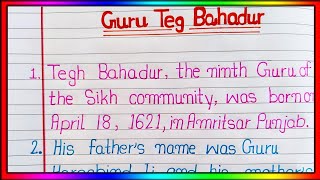 Guru Teg Bahadur
1. Tegh Bahadur, the ninth Guru of
the Sikh community, was born on
April 18, 1621, in Amritsar Punjab.
2. His father's name was Guru
Hargobind Ji and his mother's